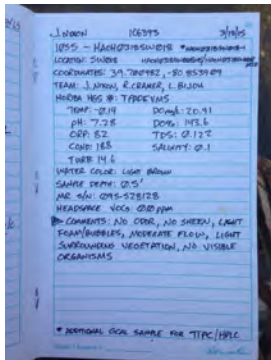 J. NIXON 106393 3/19/15
1055 - HACH031BSW018
LOCATION: SW018
COORDINATES: 39.700982, -80.853909
TEAM: J. NIXON, R. CRAMER, L. BIJOU
HORIBA HGS #: TPPREVMS
TEMP: -0.19 DO mg/L: 20.91
pH: 7.28 DO%: 143.6
ORP: 82 TDS: 0.122
COND: 188 SALINITY: 0.1
TURB 14.6
WATER COLOR: LIGHT BROWN
SAMPLE DEPTH: 0.5'
MR S/N: 095-528128
HEADSPACE VOCS: 0.0 ppm
COMMENTS: NO ODOR, NO SHEEN, LIGHT
FOAM/BUBBLES, MODERATE FLOW, LIGHT
SURROUNDING VEGETATION, NO VISIBLE
ORGANISMS
* ADDITIONAL GCAL SAMPLE FOR TTPC/HPLC